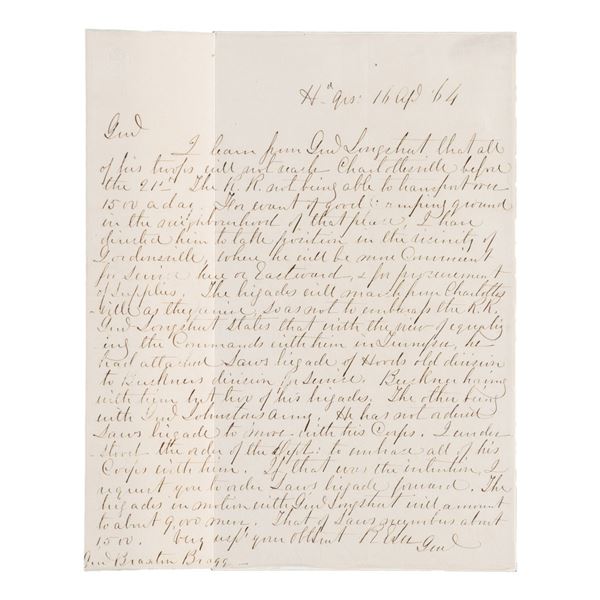 Hd qrs: 16 Apl 64
Genl
I learn from Genl Longstreet that all
of his troops will not reach Charlottesville before
the 21st. The R.R. not being able to transport over
1500 a day. For want of good camping ground
in the neighbourhood of that place, I have
directed him to take position in the vicinity of
Gordonsville, where he will be more convenient
for service here or Eastward, & for procurement
of supplies. The brigades will march from Charlottes
-ville as they arrive, so as not to embarrass the R.R.
Genl Longstreet states that with the view of equaliz-
-ing the Commands with him in Tennessee, he
had attached Laws brigade of Hoods old division
to Buckners division for service. Buckner having
with him but two of his brigades. The other being
with Genl Johnstons Army. He has not ordered
Laws brigade to move with his Corps. I under
-stood the order of the Dept: to embrace all of his
Corps with him. If that was the intention, I
request you to order Laws brigade forward. The
brigades in motion with Genl Longstreet will amount
to about 9,000 men. That of Laws numbers about
1500. Very respy your obt svt R E Lee
Genl
Genl Braxton Bragg